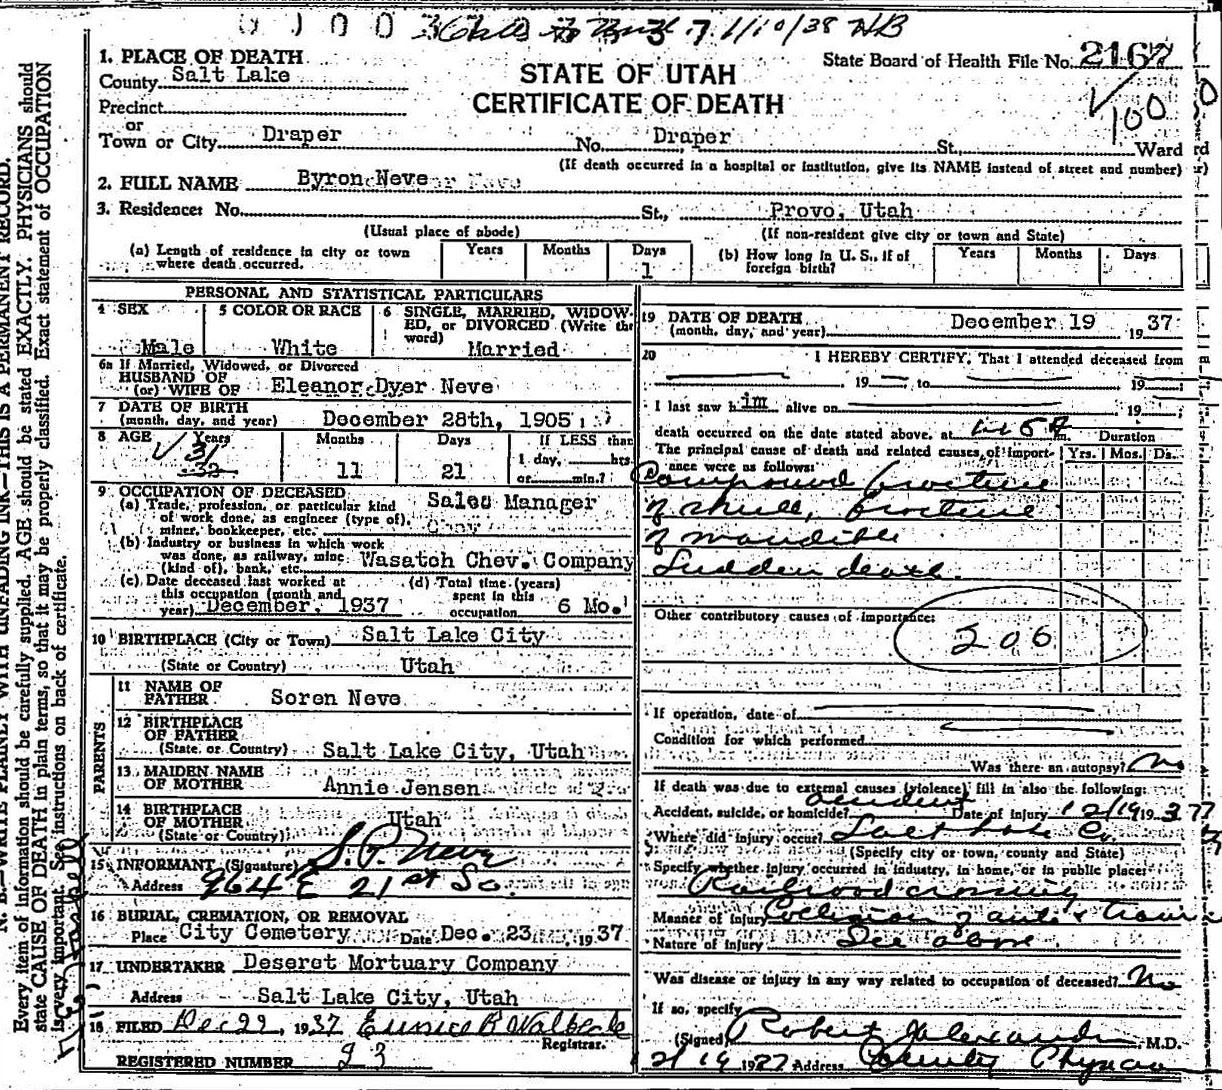 1/10/38 HB
1. PLACE OF DEATH
County Salt Lake
Precinct
or
Town or City Draper No. Draper St. Ward
STATE OF UTAH
CERTIFICATE OF DEATH
State Board of Health File No. 2167
100
(If death occurred in a hospital or institution, give its NAME instead of street and number)
2. FULL NAME Byron Neve
3. Residence: No. St., Provo, Utah
(Usual place of abode) (If non-resident give city or town and State)
(a) Length of residence in city or town where death occurred. Years Months Days 1
(b) How long in U. S., if of foreign birth? Years Months Days
PERSONAL AND STATISTICAL PARTICULARS
4 SEX Male
5 COLOR OR RACE White
6 SINGLE, MARRIED, WIDOWED, or DIVORCED (Write the word) Married
6a If Married, Widowed, or Divorced
HUSBAND OF
(or) WIFE OF Eleanor Dyer Neve
7 DATE OF BIRTH
(month, day, and year) December 28th, 1905
8 AGE Years 31 32 Months 11 Days 21 If LESS than 1 day, hrs or min.?
9 OCCUPATION OF DECEASED
(a) Trade, profession, or particular kind of work done, as engineer (type of), miner, bookkeeper, etc. Sales Manager
(b) Industry or business in which work was done, as railway, mine (kind of), bank, etc. Wasatch Chev. Company
(c) Date deceased last worked at this occupation (month and year) December, 1937
(d) Total time (years) spent in this occupation 6 Mo.
10 BIRTHPLACE (City or Town) Salt Lake City
(State or Country) Utah
PARENTS
11 NAME OF FATHER Soren Neve
12 BIRTHPLACE OF FATHER
(State or Country) Salt Lake City, Utah
13 MAIDEN NAME OF MOTHER Annie Jensen
14 BIRTHPLACE OF MOTHER
(State or Country) Utah
15 INFORMANT (Signature) S. P. Neve
Address 964 E 21st So.
16 BURIAL, CREMATION, OR REMOVAL
Place City Cemetery Date Dec. 23 1937
17 UNDERTAKER Deseret Mortuary Company
Address Salt Lake City, Utah
18 FILED Dec 22, 1937 Eunice B Walbeck
Registrar.
REGISTERED NUMBER 23
19 DATE OF DEATH
(month, day, and year) December 19 1937
20 I HEREBY CERTIFY, That I attended deceased from
19 to 19
I last saw him alive on 19
death occurred on the date stated above, at m. Duration
The principal cause of death and related causes of importance were as follows: Yrs. Mos. Ds.
Compound fracture
of skull, fracture
of mandible
Sudden death.
Other contributory causes of importance:
206
If operation, date of
Condition for which performed
Was there an autopsy? No
If death was due to external causes (violence) fill in also the following:
Accident, suicide, or homicide? accident Date of injury 12/19 1937
Where did injury occur? Salt Lake Co.
(Specify city or town, county and State)
Specify whether injury occurred in industry, in home, or in public place:
Railroad crossing
Manner of injury Collision of auto & train
Nature of injury See above.
Was disease or injury in any way related to occupation of deceased? No
If so, specify
(Signed) Robert Alexander, M.D.
12/19 1937 Address County Physician
N. B.—WRITE PLAINLY WITH UNFADING INK—THIS IS A PERMANENT RECORD.
Every item of information should be carefully supplied. AGE should be stated EXACTLY. PHYSICIANS should
state CAUSE OF DEATH in plain terms, so that it may be properly classified. Exact statement of OCCUPATION
is very important. See instructions on back of certificate.